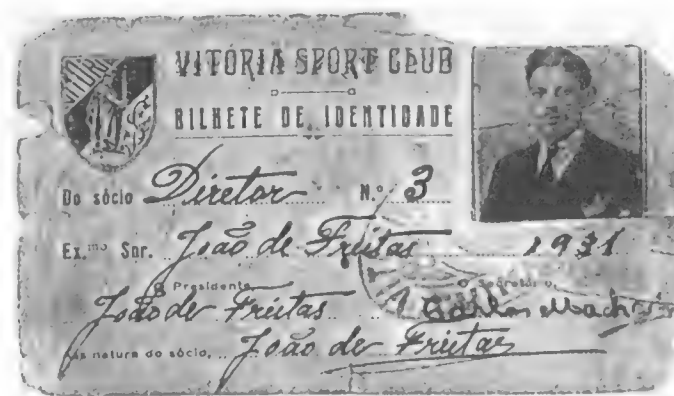 VITÓRIA
VITÓRIA SPORT CLUB
BILHETE DE IDENTIDADE
Do sócio Diretor N.º 3
Ex.mo Snr. João de Freitas 1931
O Presidente O Secretário
João de Freitas Carlos Machado
Assinatura do sócio, João de Freitas